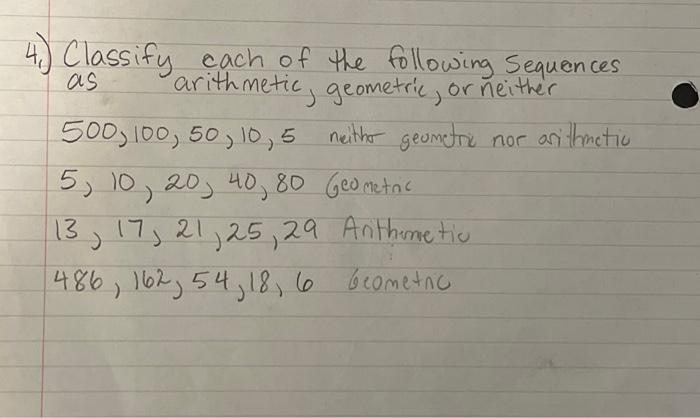 4.) Classify each of the following Sequences
as arithmetic, geometric, or neither
500, 100, 50, 10, 5 neither geometric nor arithmetic
5, 10, 20, 40, 80 Geometric
13, 17, 21, 25, 29 Arithmetic
486, 162, 54, 18, 6 Geometric